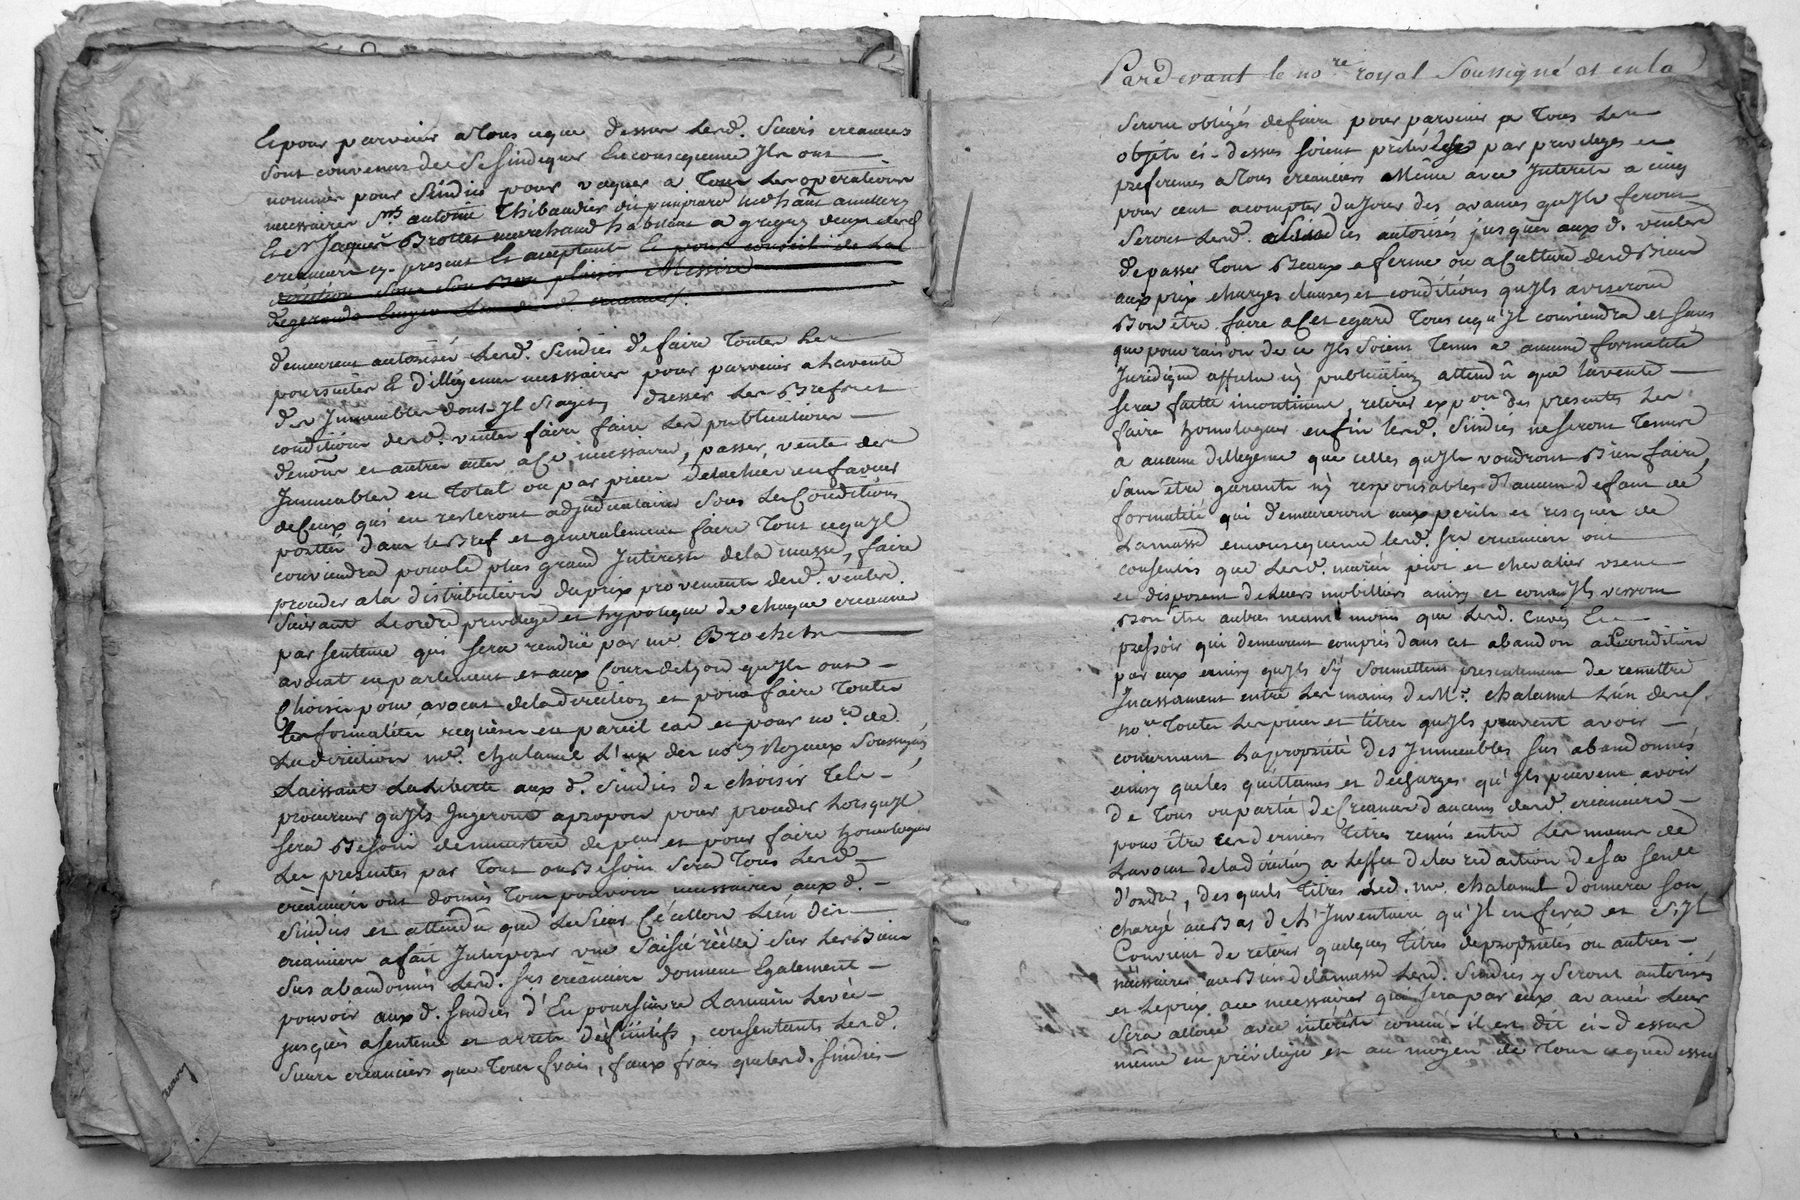 Et pour parvenir a tous ceque dessus Lesd. Sieurs creanciers
sont convenus de se sindiquer En consequence Jls ont
nommés pour Sindic pour vaquer a tous Les operations
necessaires Srs antoine Thibaudier dit marchand
Et Sr Jaques Brottet marchand habitant a grigny deux desd
creanciers cy-present Et acceptants Et pour conseil de La
direction sous son Bon plaisir Messire
Lesd. creanciers
demeurent autorisés Lesd. Sindics de faire toutes Les
poursuites Et dilligences necessaires pour parvenir a La vente
des Jmmeubles dont Jl s'agit, dresser Les Brefs et
conditions desd. ventes faire faire Les publications
et autres actes a Ce necessaires, passer vente des
Jmmeubles en total ou par pieces detachées en faveur
de Ceux qui en resteront adjudicataires sous Les Conditions
portées dans le Bref et generalement faire tout cequ'Jl
conviendra pour le plus grand Jnterest de la masse, faire
proceder a la distribution du prix provenants desd. ventes
suivant Lordre privilege et hypoteque de chaque creancier
par sentence qui sera rendüe par me. Brochet
avocat en parlement et aux Cours de Lyon qu'Jls ont
Choisi pour avocat de la direction et pour faire toutes
Les formalités requises en pareil cas et pour nore. de
La direction me. chalamel L'un des nores Royaux soussignés
Laissant La Liberté aux d. Sindics de choisir tels
procureur qu'Jls Jugeront apropos pour proceder Lorsqu'Jl
sera Besoin de ministere de et pour faire homologuer
Les presentes par tout ou Besoin sera tous Lesd.
creanciers ont donnés tous pouvoirs necessaires aux d.
Sindics et attendu que Le sieur Cécillon L'un des
creanciers a fait Jnterposer une saisie réelle sur Les Biens
sus abandonnés Lesd. srs creanciers donnent Egalement
pouvoir aux d. sindics d'En poursuivre La main Levée
jusques a sentence et arrets définitifs, consentants Lesd.
sieurs creanciers que tous frais, faux frais que lesd. sindics
Pardevant le nore royal soussigné et en la
seront obligés de faire pour parvenir a tous Les
objets ci-dessus soient prélévés par privileges et
preferences a tous creanciers Même avec Jnterets a cinq
pour cent a compter du Jour des avances qu'Jls feront
seront Lesd. sindics autorisés jusques aux d. ventes
de passer tous Beaux a ferme ou a Culture desd. Biens
aux prix charges clauses et conditions qu'Jls aviseront
Bon être faire a Cet egard tous ce qu'Jl conviendra et sans
que pour raison de ce Jls soient tenus a aucune formalité
Juridique affiche ny publication attendû que la vente
sera faitte incontinent, retirer expon des presentes Les
faire homologuer enfin lesd. sindics ne seront tenus
a aucune dilligence que celles qu'Jls voudront Bien faire,
sans être garants ny responsables d'aucun defaut de
formalité qui demeureront aux perils et risques de
La masse en consequence lesd. srs creanciers ont
consentis que Lesd. mariés peivt et chevalier usent
et disposent de Leurs mobilliers ainsy et comm' Jls verront
Bon être autres neanmoins que Lesd. Cuves Et
pressoir qui demeurent compris dans cet abandon a Condition
par eux ainsy qu'Jls s'y soumettent presentement de remettre
Jncessament entre Les mains de Me. chalamel L'un desd.
nores toutes Les pieces et titres qu'Jls peuvent avoir
concernant La propriété des Jmmeubles sus abandonnés
ainsy que les quittances et decharges qu'Jls peuvent avoir
de tous ou partie de Creances d'aucuns desd. creanciers
pour être ces derniers titres remis entre Les mains de
Lavocat de la direction a L'effet de la redaction de sa sentence
d'ordre, des quels titres Led. me. chalamel donnera son
chargé au Bas de L'Jnventaire qu'Jl en fera et s'Jl
Convient de retirer quelques titres de propriétés ou autres
nécessaires au Bien de la masse Lesd. sindics y seront autorisés
et Le prix a ce necessaires qui sera par eux avancé Leur
sera alloué avec intérêts comme il est dit ci-dessus
même en privilege et au moyen de tous ceque dessus